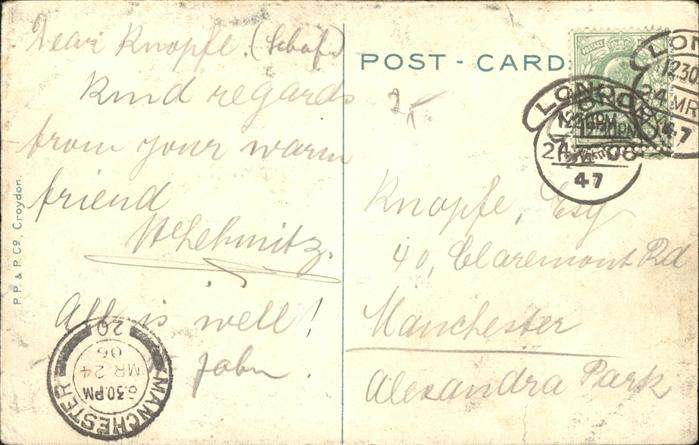 Dear Knopfe.
Kind regards
from your warm
friend
All is well!
John.
P.P. & P. Co., Croydon
POST - CARD
LONDON
12.30
24 MR
47
LONDON
24 06
47
Knopfe, Esq
40, Claremont Rd
Manchester
Alexandra Park
MANCHESTER
6.30 PM
MR 24
06
20